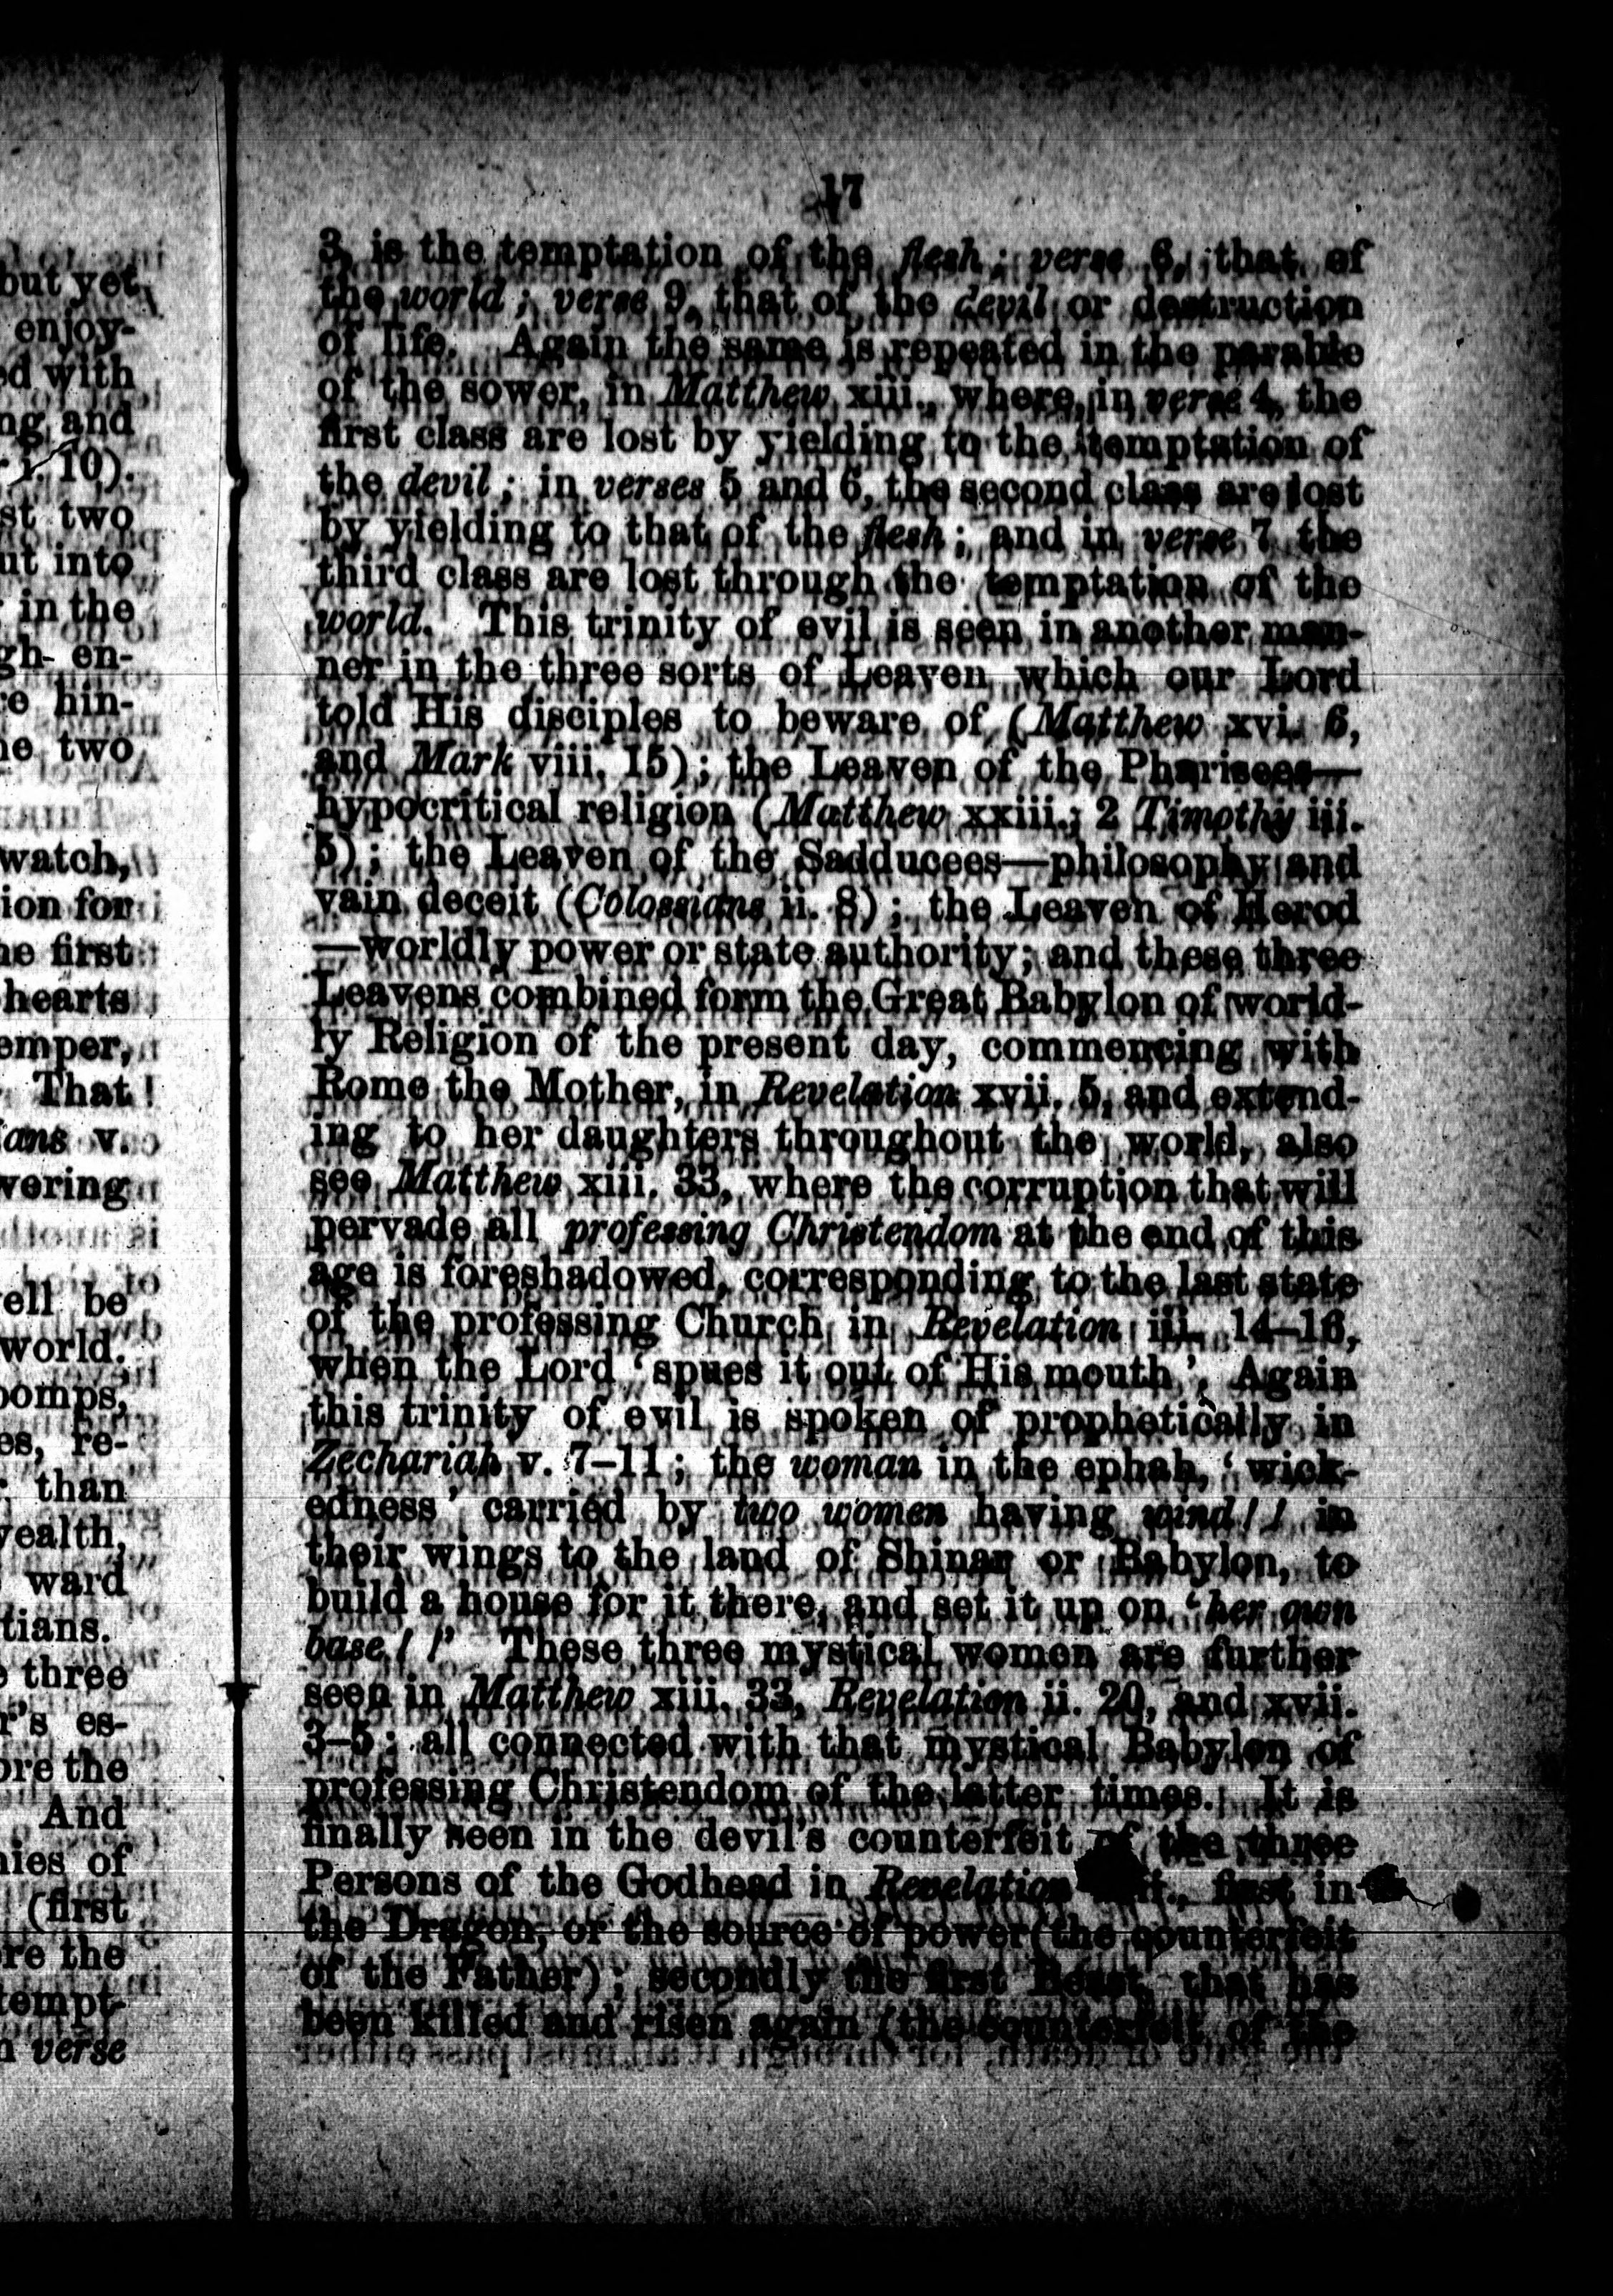 but yet
enjoy-
ed with
ng and
i. 10).
st two
ut into
in the
gh en-
re hin-
he two
watch,
ion for
he first
hearts
emper,
That
ians v.
vering
ell be
world.
pomps,
es, re-
than
wealth,
ward
tians.
three
r's es-
ore the
And
nies of
(first
re the
tempt-
verse
17
3, is the temptation of the flesh; verse 6, that of
the world; verse 9, that of the devil or destruction
of life. Again the same is repeated in the parable
of the sower, in Matthew xiii., where, in verse 4, the
first class are lost by yielding to the temptation of
the devil; in verses 5 and 6, the second class are lost
by yielding to that of the flesh; and in verse 7 the
third class are lost through the temptation of the
world. This trinity of evil is seen in another man-
ner in the three sorts of Leaven which our Lord
told His disciples to beware of (Matthew xvi. 6,
and Mark viii. 15); the Leaven of the Pharisees—
hypocritical religion (Matthew xxiii.; 2 Timothy iii.
5); the Leaven of the Sadducees—philosophy and
vain deceit (Colossians ii. 8); the Leaven of Herod
—worldly power or state authority; and these three
Leavens combined form the Great Babylon of world-
ly Religion of the present day, commencing with
Rome the Mother, in Revelation xvii. 5, and extend-
ing to her daughters throughout the world, also
see Matthew xiii. 33, where the corruption that will
pervade all professing Christendom at the end of this
age is foreshadowed, corresponding to the last state
of the professing Church in Revelation iii. 14–16,
when the Lord 'spues it out of His mouth'. Again
this trinity of evil is spoken of prophetically in
Zechariah v. 7–11; the woman in the ephah, 'wick-
edness' carried by two women having wind!! in
their wings to the land of Shinar or Babylon, to
build a house for it there, and set it up on 'her own
base!!' These three mystical women are further
seen in Matthew xiii. 33, Revelation ii. 20, and xvii.
3–5; all connected with that mystical Babylon of
professing Christendom of the latter times. It is
finally seen in the devil's counterfeit of the three
Persons of the Godhead in Revelation first in
the Dragon, or the source of power (the counterfeit
of the Father); secondly the first Beast, that has
been killed and risen again (the counterfeit of the